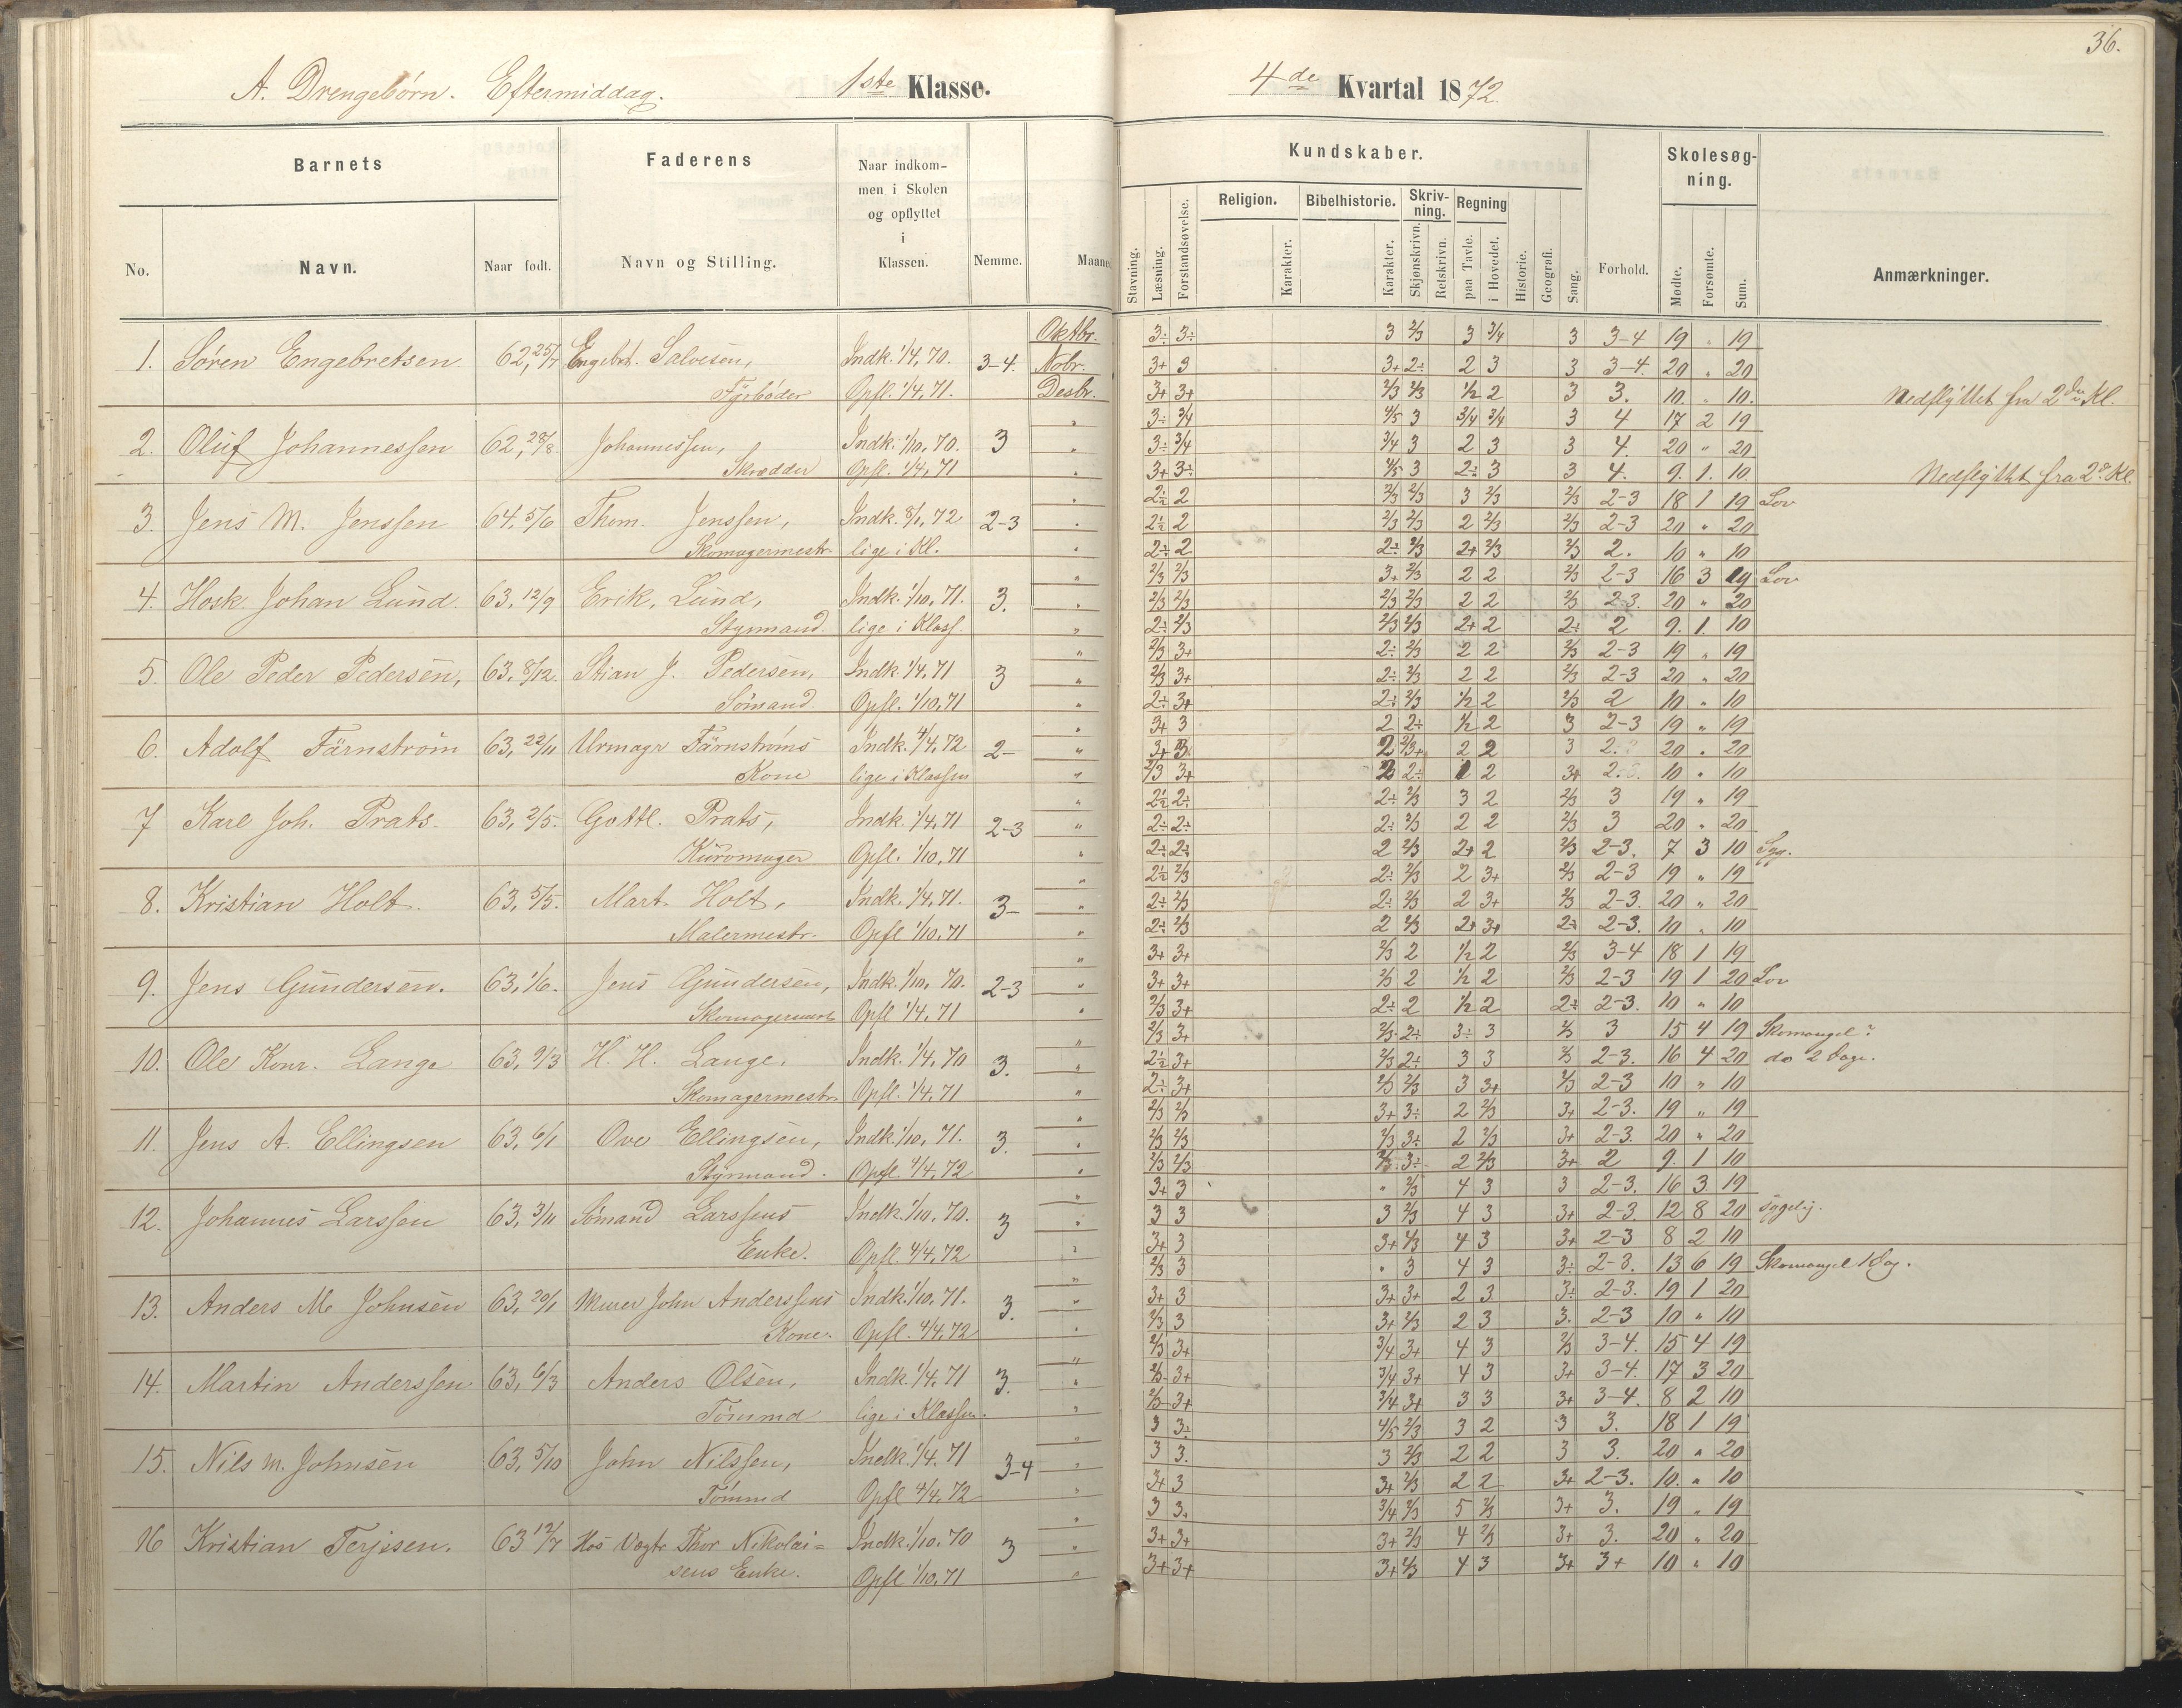 36.
A. Drengebørn. Eftermiddag. 1ste Klasse. 4de Kvartal 1872.
Barnets Faderens Naar indkommen i Skolen og opflyttet i Klassen. Nemme. Maaned Kundskaber. Skolesøgning.
No. Navn. Naar født. Navn og Stilling.
Stavning. Læsning. Forstandsøvelse. Religion. Karakter. Bibelhistorie. Karakter. Skrivning. Skjønskrivn. Retskrivn. Regning paa Tavle. i Hovedet. Historie. Geografi. Sang. Forhold. Mødte. Forsømte. Sum. Anmærkninger.
Oktbr. 3÷ 3÷ 3 2/3 3 3/4 3 3-4 19 " 19
1. Søren Engebretsen 62, 25/7 Engebrt. Salvesen, Indk. 1/4, 70. 3-4. Nobr. 3+ 3 3+ 2÷ 2 3 3 3-4. 20 " 20
Fyrbøder Opfl. 1/4, 71. Desbr. 3+ 3+ 2/3 2/3 1/2 2 3 3. 10. " 10. Nedflyttet fra 2den Kl.
" 3÷ 3/4 4/5 3 3/4 3/4 3 4 17 2 19
2. Oluf Johannessen 62, 28/8 Johannessen, Indk. 1/10, 70. 3 " 3÷ 3/4 3/4 3 2 3 3 4. 20 " 20
Skrædder Opfl. 1/4, 71 " 3+ 3÷ 4/5 3 2÷ 3 3 4. 9. 1. 10 Nedflyttet fra 2d Kl.
" 2÷ 2 2/3 2/3 3 2/3 2/3 2-3 18 1 19 Lov
3. Jens M. Jenssen 64, 5/6 Thom. Jenssen, Indk. 8/1, 72 2-3 " 2÷ 2 2/3 2/3 2 2/3 2/3 2-3 20 " 20
Skomagermestr. lige i Kl. " 2÷ 2 2÷ 2/3 2+ 2/3 2/3 2. 10 " 10
" 2/3 2/3 3+ 2/3 2 2 2/3 2-3 16 3 19 Lov
4. Hosk. Johan Lund. 63, 12/9 Erik, Lund, Indk. 1/10, 71. 3. " 2/3 2/3 2/3 2/3 2 2 2/3 2-3. 20 " 20
Styrmand. lige i Klass. " 2÷ 2/3 2/3 2/3 2+ 2 2÷ 2 9. 1. 10
" 2/3 3+ 2÷ 2/3 2 2 2/3 2-3 19 " 19
5. Ole Peder Pedersen, 63, 8/12. Stian J. Pedersen, Indk. 1/4, 71 3 " 2/3 3+ 2÷ 2/3 2 2 2/3 2-3 20 " 20
Sømand. Opfl. 1/10, 71 " 2÷ 3+ 2÷ 2/3 1/2 2 2/3 2 10 " 10
" 3+ 3 2 2÷ 1/2 2 3 2-3 19 " 19
6. Adolf Färnström 63, 22/11 Urmagr Färnströms Indk. 4/4, 72. 2- " 3+ 3 2 2/3+ 2 2 3 20 " 20
Kone lige i Klassen " 2/3 3+ 2 2÷ 2 3+ 10 " 10
" 2÷ 2÷ 2÷ 2/3 3 2 2/3 3 19 " 19
7 Karl Joh. Prats. 63, 2/5. Gottl. Prats, Indk. 1/4, 71 2-3 " 2÷ 2÷ 2÷ 2/3 2 2 2/3 3 20 " 20
Kurvmager Opfl. 1/10, 71 " 2÷ 2÷ 2 2/3 2+ 2 2/3 2-3. 7 3 10 Syg.
" 2÷ 2/3 2÷ 2/3 2 3+ 2/3 2-3 19 " 19
8. Kristian Holt. 63, 5/5. Mart. Holt, Indk. 1/4, 71. 3- " 2÷ 2/3 2÷ 2/3 2 3+ 2/3 2-3. 20 " 20
Malermestr. Opfl 1/10, 71 " 2÷ 2/3 2 2/3 2+ 3+ 2÷ 2-3. 10 " 10
" 3+ 3+ 2/3 2 1/2 2 2/3 3-4 18 1 19
9. Jens Gundersen. 63, 1/6. Jens Gundersen, Indk. 1/10, 70. 2-3 " 3+ 3+ 2/3 2 1/2 2 2/3 2-3 19 1 20 Lov
Skomagermest Opfl 1/4, 71 " 2/3 3+ 2÷ 2 1/2 2 2÷ 2-3. 10 " 10
" 2/3 3+ 2/3 2÷ 3÷ 3 2/3 3 15 4 19 Skomangel?
10. Ole Konr. Lange 63, 9/3 H. H. Lange. Indk. 1/4, 70 3. " 2÷ 3+ 2/3 2÷ 3 3 2/3 2-3. 16 4 20 do 2 Dage.
Skomagermestr. Opfl. 1/4, 71 " 2÷ 3+ 2/3 2/3 3 3+ 2/3 2-3 10 " 10
" 2/3 2/3 3+ 3÷ 2 2/3 3+ 2-3. 19 " 19
11. Jens A. Ellingsen 63, 6/1 Ove Ellingsen, Indk. 1/10, 71. 3. " 2/3 2/3 2/3 3÷ 2 2/3 3+ 2-3. 20 " 20
Styrmand. Opfl. 4/4, 72 " 2/3 2/3 2/3 3÷ 2 2/3 3+ 2 9. 1 10
" 3+ 3 " 2/3 4 3 3 2-3. 16 3 19
12. Johannes Larssen 63, 3/11 Sømand Larssens Indk. 1/10, 70. 3 " 3 3 3 2/3 4 3 3+ 2-3. 12 8 20 Sygelig.
Enke. Opfl. 4/4, 72 " 3+ 3 3+ 2/3 4 3 3+ 2-3 8 2 10
" 2/3 3 " 3 4 3 3÷ 2-3. 13 6 19 Skomangel 1 Dag.
13. Anders M. Johnsen 63, 20/1 Murer John Anderssens Indk. 1/10, 71. 3. " 3+ 3 3+ 3+ 2 3 3÷ 2-3. 19 1 20
Kone. Opfl. 4/4, 72 " 2/3 3 3+ 2/3 2 3 3. 2-3 10 " 10
" 2/3 3+ 3/4 3+ 4 3 2/3 3-4. 15 4 19
14. Martin Anderssen 63, 6/3 Anders Olsen, Indk. 1/4, 71 3. " 2/3 3+ 3/4 3+ 4 3 3+ 3-4. 17 3 20
Tømmd lige i Klassen. " 2/3 3+ 3/4 3+ 3 3 3+ 3-4. 8 2 10
" 3 3÷ 4/5 2/3 3 2 3 3. 18 1 19
15. Nils M. Johnsen 63, 5/10 John Nilssen, Indk. 1/4, 71 3-4 " 3 3. 3 2/3 2 2 3 3. 20 " 20
Tømmd Opfl 4/4, 72 " 3+ 3 3+ 2/3 2 2 3+ 2-3. 10. " 10
" 3 3. 3/4 2/3 5 2/3 3+ 3. 19 " 19
16 Kristian Terjesen. 63 12/7 Hos Vægtr Thor Nikolai= Indk. 1/10, 70 3 " 3+ 3+ 3+ 2/3 4 2/3 3+ 3. 20 " 20
sens Enke. Opfl 1/10, 71 " 3+ 3+ 3+ 2/3 4 3 3+ 3+ 10 " 10